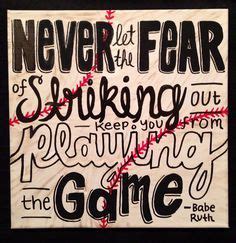 NEVER let the FEAR
of Striking out
KEEP YOU FROM
playing
the Game
-Babe Ruth